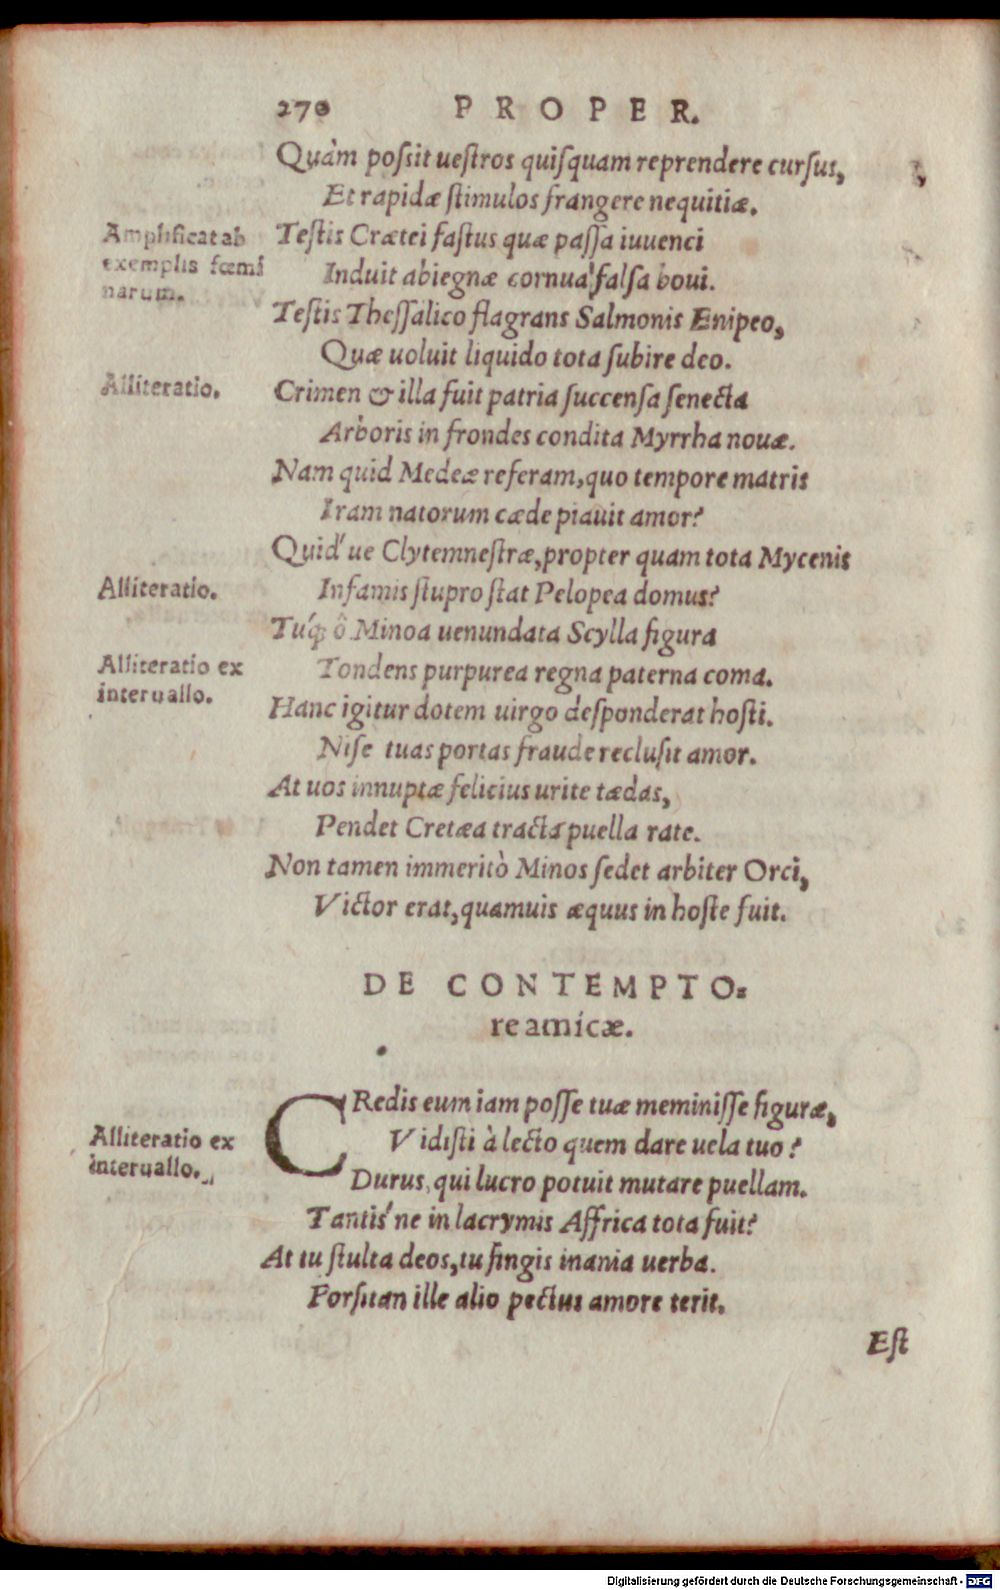 270 PROPER.
Quàm possit uestros quisquam reprendere cursus,
Et rapidæ stimulos frangere nequitiæ.
Amplificat ab
exemplis fœmi
narum.
Testis Crætei fastus quæ passa iuuenci
Induit abiegnæ cornua falsa boui.
Testis Thessalico flagrans Salmonis Enipeo,
Quæ uoluit liquido tota subire deo.
Alliteratio.
Crimen & illa fuit patria succensa senecta
Arboris in frondes condita Myrrha nouæ.
Nam quid Medeæ referam, quo tempore matris
Iram natorum cæde piauit amor?
Quid'ue Clytemnestræ, propter quam tota Mycenis
Alliteratio.
Infamis stupro stat Pelopea domus?
Tuq́; ô Minoa uenundata Scylla figura
Alliteratio ex
interuallo.
Tondens purpurea regna paterna coma.
Hanc igitur dotem uirgo desponderat hosti.
Nise tuas portas fraude reclusit amor.
At uos innuptæ felicius urite tædas,
Pendet Cretæa tracta puella rate.
Non tamen immeritò Minos sedet arbiter Orci,
Victor erat, quamuis æquus in hoste fuit.
DE CONTEMPTO=
re amicæ.
CRedis eum iam posse tuæ meminisse figuræ,
Alliteratio ex
interuallo.
Vidisti à lecto quem dare uela tuo?
Durus, qui lucro potuit mutare puellam.
Tantis'ne in lacrymis Affrica tota fuit?
At tu stulta deos, tu fingis inania uerba.
Forsitan ille alio pectus amore terit.
Est
Digitalisierung gefördert durch die Deutsche Forschungsgemeinschaft - DFG